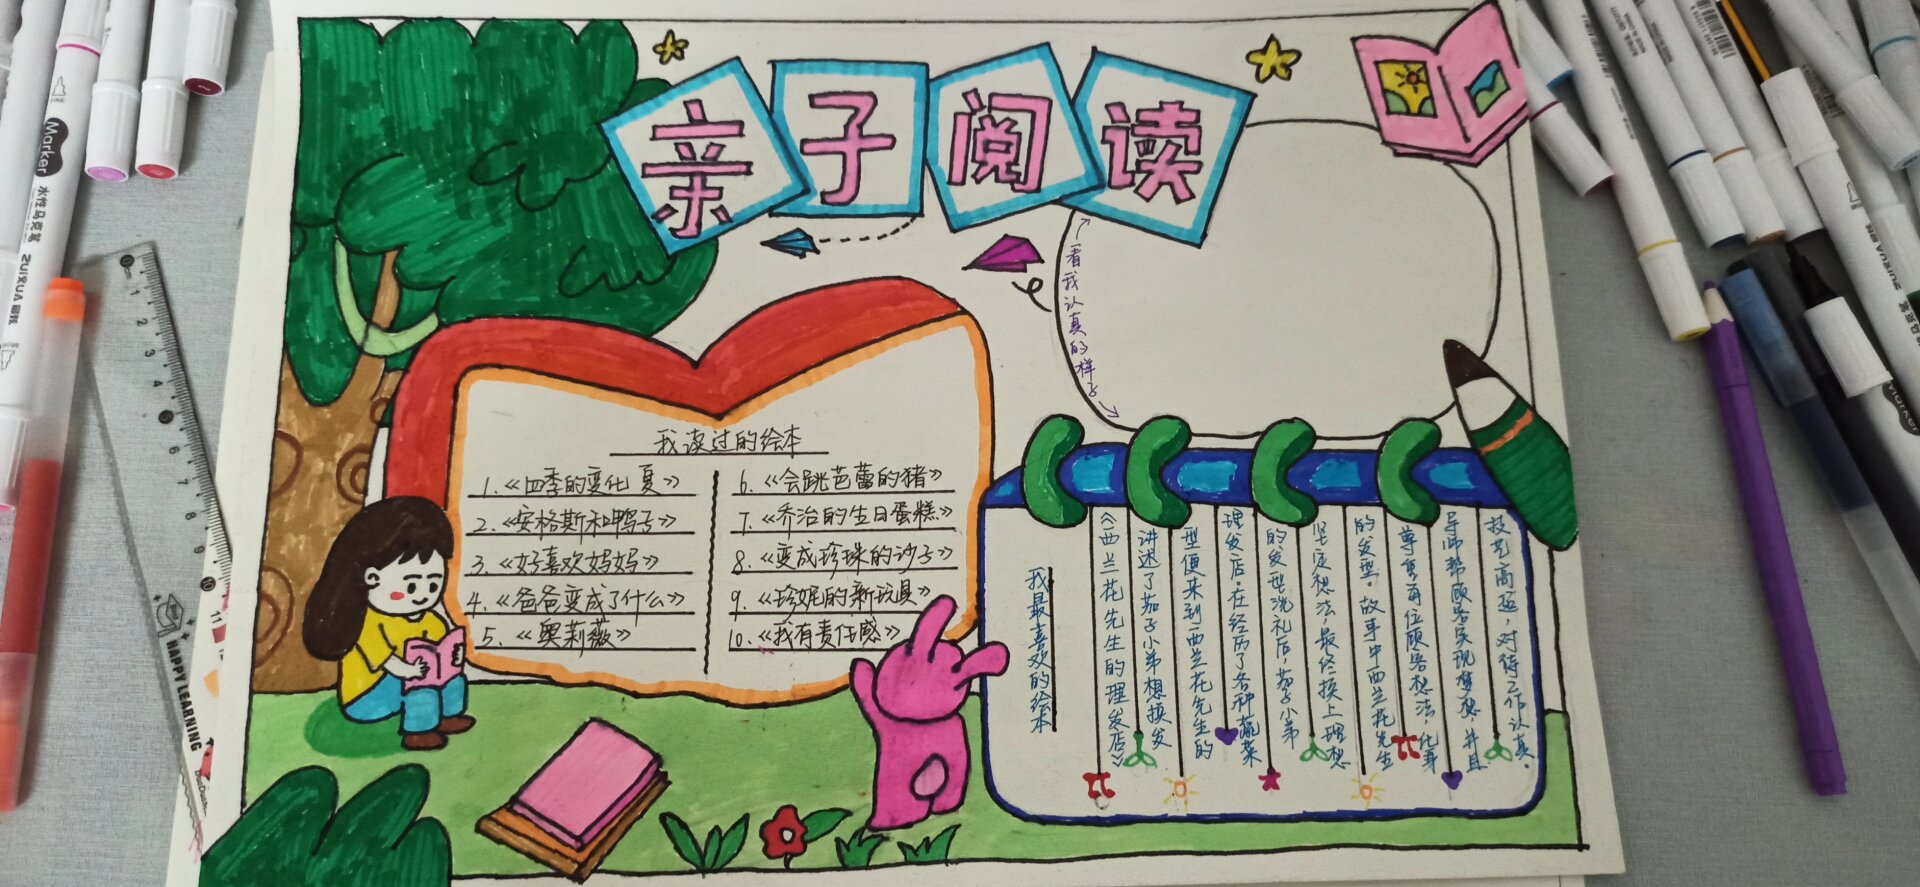 亲子阅读
←看我认真的样子→
我读过的绘本
1.《四季的变化 夏》
2.《安格斯和鸭子》
3.《好喜欢妈妈》
4.《爸爸变成了什么》
5.《奥莉薇》
6.《会跳芭蕾的猪》
7.《乔治的生日蛋糕》
8.《变成珍珠的沙子》
9.《珍妮的新玩具》
10.《我有责任感》
我最喜欢的绘本
《西兰花先生的理发店》
讲述了茄子小弟想换发
型便来到西兰花先生的
理发店。在经历了各种蔬菜
的发型洗礼后，茄子小弟
坚定想法，最终换上理想
的发型。故事中西兰花先生
尊重每位顾客想法，化身
导师帮顾客实现梦想，并且
技艺高超，对待工作认真。
Marker
水性马克笔
ZUIXUA
HAPPY LEARNING